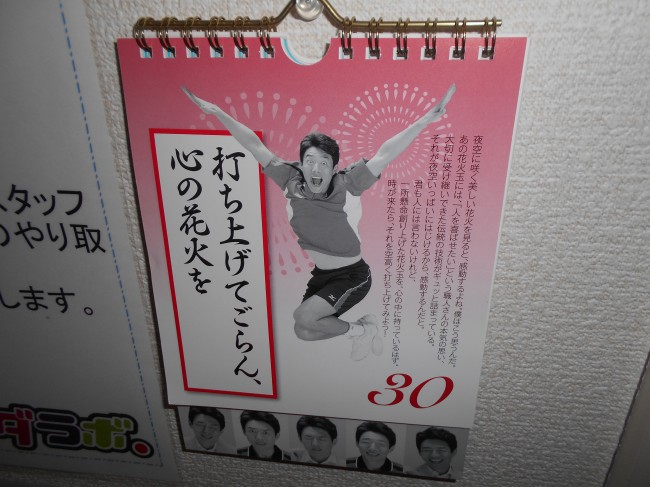 打ち上げてごらん、
心の花火を
夜空に咲く美しい花火を見ると、感動するよね。僕はこう思うんだ。
あの花火玉には、「人を喜ばせたい」という職人さんの本気の思い、
大切に受け継いできた伝統の技術がギュッと詰まっている。
それが夜空いっぱいにはじけるから、感動するんだと。
君も人には言わないけれど、
一所懸命創り上げた花火玉を、心の中に持っているはず。
時が来たら、それを空高く打ち上げてみよう！
30
スタッフ
のやり取
します。
ダラボ。